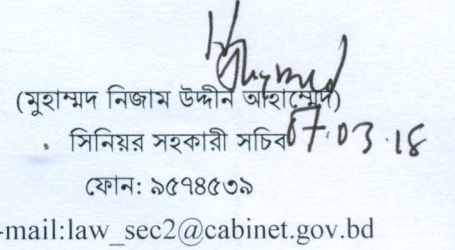 (মুহাম্মদ নিজাম উদ্দীন আহাম্মেদ)
সিনিয়র সহকারী সচিব 07.03.18
ফোন: ৯৫৭৪৫৩৯
-mail:law_sec2@cabinet.gov.bd